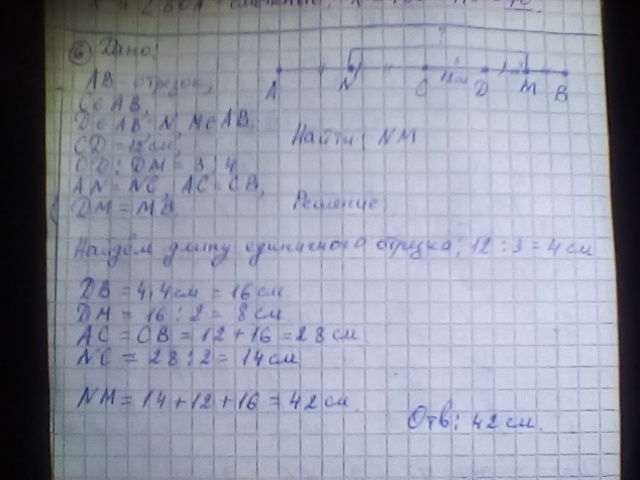 ⑥ Дано:
?
AB - отрезок,
C∈AB,
A N C 12см D M B
D∈AB, N, M∈AB
CD = 12см,
Найти: NM
CD : DM = 3 : 4
AN = NC, AC = CB,
DM = MB
Решение:
Найдём длину единичного отрезка: 12 : 3 = 4 см
DB = 4 · 4см = 16 см
DM = 16 : 2 = 8 см
AC = CB = 12 + 16 = 28 см
NC = 28 : 2 = 14 см
NM = 14 + 12 + 16 = 42 см.
Отв: 42 см.